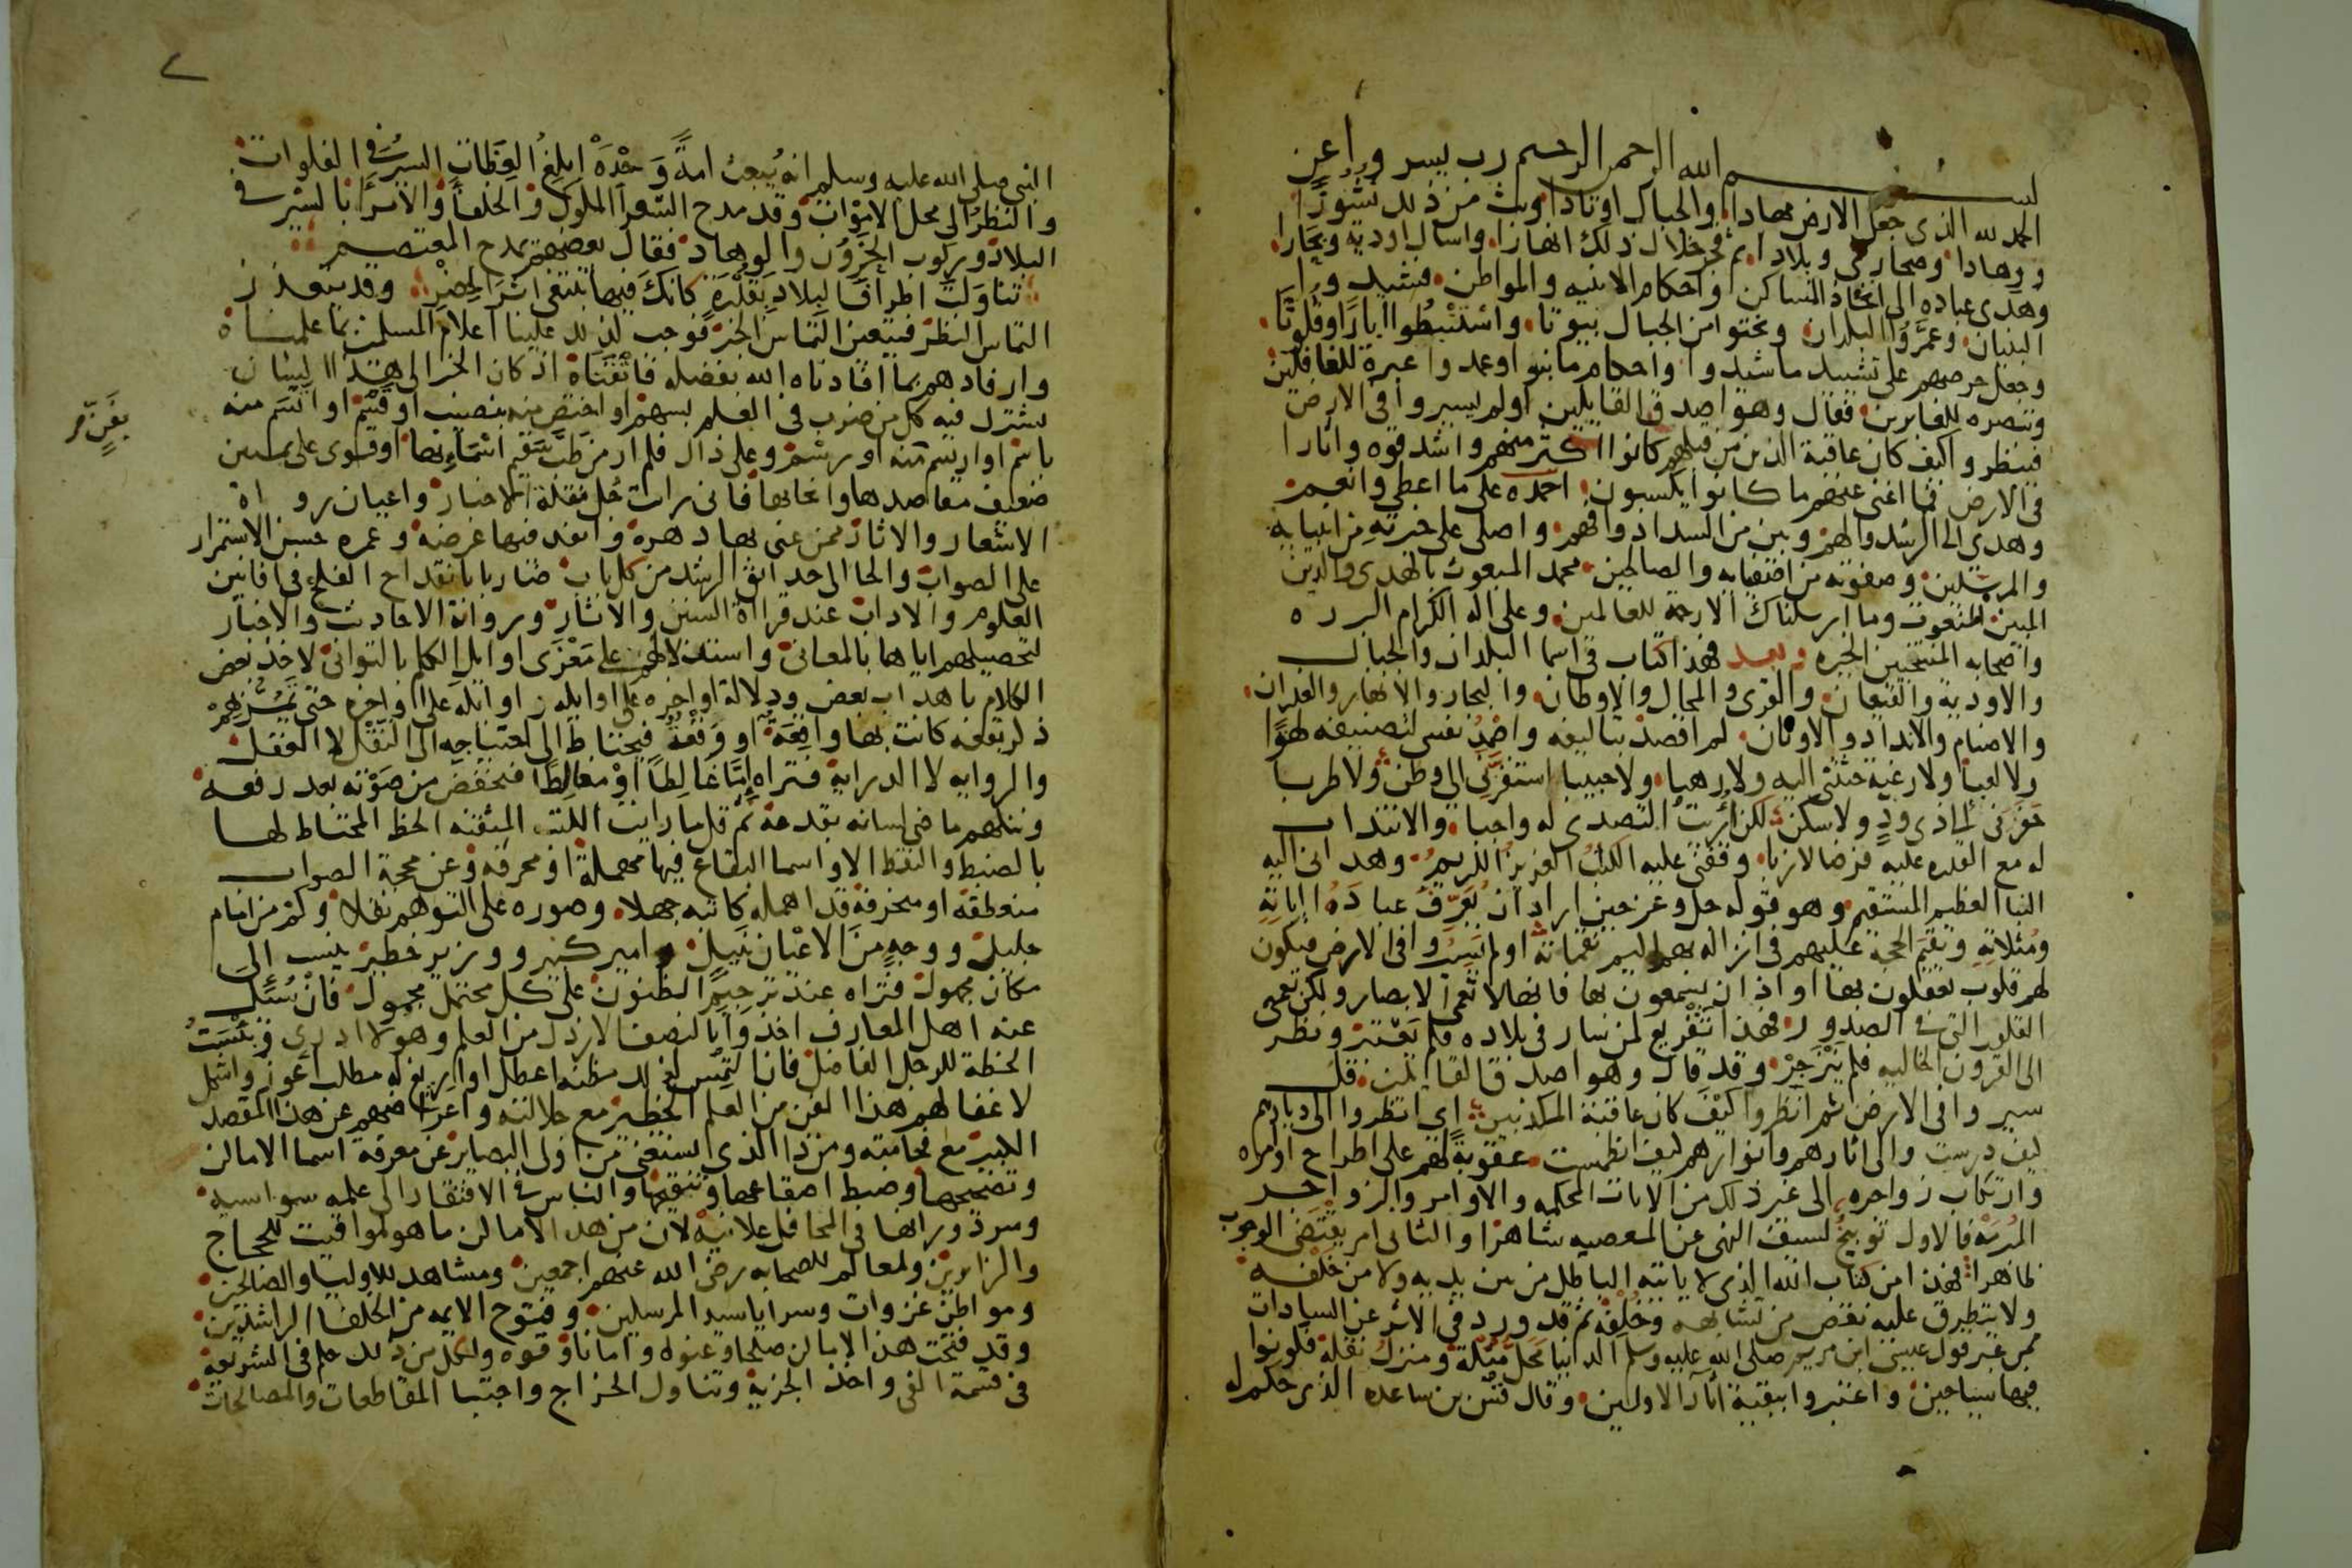 بسم الله الرحمن الرحيم رب يسر واعن
الحمد لله الذى جعل الارض مهادا والجبال اوتادا وبث من ذلك نشوزا
ووهادا وصحارى وبلادا ثم فجر خلال ذلك انهارا واسال اودية وبحارا
وهدى عباده الى اتخاذ المساكن واحكام الابنيه والمواطن فشيدوا
البنيان وعمروا البلدان ونحتوا من الجبال بيوتا واستنبطوا ابارا وقلوتا
وجعل حرصهم على تشييد ما شيدوا واحكام ما بنوا وعمدوا عبرة للغافلين
وتبصره للغابرين فقال وهو اصدق القايلين اولم يسيروا فى الارض
فينظروا كيف كان عاقبة الذين من قبلهم كانوا اكثر منهم واشد قوه واثارا
فى الارض فما اغنى عنهم ما كانوا يكسبون احمده على ما اعطى وانعم
وهدى الى الرشد والهم وبين من السداد وافهم واصلى على خيرته من انبيايه
والمرسلين وصفوته من اصفيايه والصالحين محمد المبعوث بالهدى والدين
المبين المنعوت وما ارسلناك الا رحمة للعالمين وعلى اله الكرام البرره
واصحابه المنتجبين الخيره وبعد فهذا كتاب فى اسما البلدان والجبال
والاودية والقيعان والقرى والمحال والاوطان والبحار والانهار والغدران
والاصنام والانداد والاوثان لم اقصد بتاليفه واصمد نفسى لتصنيفه لهوا
ولا لعبا ولا رغبة حثتنى اليه ولا رهبا ولا حنينا استفزنى الى وطن ولا طربا
حفزنى الى ذى ود ولا سكن لكن رايت التصدى له واجبا والانتداب
له مع القدره عليه فرضا لازبا وفقنى عليه الكتاب العزيز الكريم وهدانى اليه
النبا العظيم المستقيم وهو قوله جل وعز حين اراد ان يعرف عباده اياته
ومثلاته ويقيم الحجة عليهم فى انزاله بهم اليم نقماته اولم يسيروا فى الارض فيكون
لهم قلوب يعقلون بها او اذان يسمعون بها فانها لا تعمى الابصار ولكن تعمى
القلوب التى فى الصدور فهذا تقريع لمن سار فى بلاده فلم يعتبر ونظر
الى القرون الخاليه فلم ينزجر وقد قال وهو اصدق القايلين قل
سيروا فى الارض ثم انظروا كيف كان عاقبة المكذبين اى انظروا الى ديارهم
كيف درست والى اثارهم وانوارهم كيف انطمست عقوبة لهم على اطراح اوامره
وارتكاب زواجره الى غير ذلك من الايات المحكمه والاوامر والزواجر
المبرمة فالاول توبيخ لسبق النهى عن المعصيه شاهرا والثانى امر يقتضى الوجوب
ظاهرا فهذا من كتاب الله الذى لا ياتيه الباطل من بين يديه ولا من خلفه
ولا يتطرق عليه نقص من تشابهه وخلفه ثم قد ورد فى الاثر عن السادات
ممن عبر قول عيسى ابن مريم صلى الله عليه وسلم الدنيا محل مثلة ومنزل نقلة فكونوا
فيها سياحين واعتبروا ببقية اثار الاولين وقال قس بن ساعده الذى حكم له
النبى صلى الله عليه وسلم انه يبعث امة وحده ابلغ العظات السير فى الفلوات
والنظر الى محل الاموات وقد مدح الشعرا الملوك والخلفا والامرا بالسير فى
البلاد وركوب الحزون والوهاد فقال بعضهم يمدح المعتصم
تناولت اطراف البلاد بقدرة كانك فيها تبتغى اثر الخضر وقد يتعذر
التماس النظر فيتعين التماس الخبر فوجب لذلك علينا اعلام المسلمين بما علمناه
وارفادهم بما افادناه الله بفضله فاتقناه اذ كان الخبر الى هذا الشان
يشترك فيه كل من ضرب فى العلم بسهم او اختص منه بنصيب او قسم او اتسم منه
باسم او ارتسم منه او رسم وعلى ذاك فلم ار من طب سقيم اسماءها او قوى على تمتين
ضعيف مقاصدها وانحايها فانى رايت جل نقلة الاخبار واعيان رواه
الاشعار والاثار ممن عنى بها دهره وانفد فيها عرضه وعمره حسن الاستمرار
على الصواب والجا الى حدايق الرشد من كل باب ضاربا بالقداح الفلج فى افانين
العلوم والاداب عند قراة السنن والاثار ورواية الاحاديث والاخبار
لتحصيلهم اياها بالمعانى واستدلالهم على مغزى اوايل الكلم بالتوانى لاخذ بعض
الكلام باهداب بعض ودلالة اواخره على اوايله واوايله على اواخره حتى تمر بهم
ذكر بقعه كانت بها واقعة او وقعة فيختلط الى احتياجه الى النقل لا العقل
والروايه لا الدراية فتراه اما غالطا او مغالطا فيخفض من صوته بعد رفعه
ويتكهم ماضى لسانه بعد حده ثم قل ما رايت الكتب المتقنه الخط المحتاط لها
بالضبط والنقط الا واسما البقاع فيها مهملة او محرفه وعن محجة الصواب
منعطفة او منحرفة قد اهمله كاتبه جهلا وصوره على التوهم نقلا وكم من امام
جليل ووجيه من الاعيان نبيل وامير كبير ووزير خطير ينسب الى
مكان مجهول فتراه عند ترجيم الظنون على كل محتمل محمول فان سئل
عنه اهل المعارف اخذوا بالنصف الارذل من العلم وهو لا ادرى وبئست
الخطة للرجل الفاضل فان التمس لذلك مظنه اعضل او اريغ له مطلب اعوز واشكل
لاغفالهم هذا الفن من العلم الخطير مع جلالته واعراضهم عن هذا المقصد
الكبير مع فخامته ومن ذا الذى يستغنى من اولى البصاير عن معرفة اسما الاماكن
وتصحيحها وضبط اصقاعها وتنقيحها والناس فى الافتقار الى علمه سواسيه
وسر دورانها فى المحافل علانية لان من هذه الاماكن ما هو لمواقيت للحجاج
والزايرين ولمعالم للصحابه رضى الله عنهم اجمعين ومشاهد للاوليا والصالحين
ومواطن غزوات وسرايا سيد المرسلين وفتوح الايمه من الخلفا الراشدين
وقد فتحت هذه الاماكن صلحا وعنوه وامانا وقوه ولكل من ذلك حكم فى الشريعه
فى قسمة الفى واخذ الجزية وتناول الخراج واجتبا المقاطعات والمصالحات